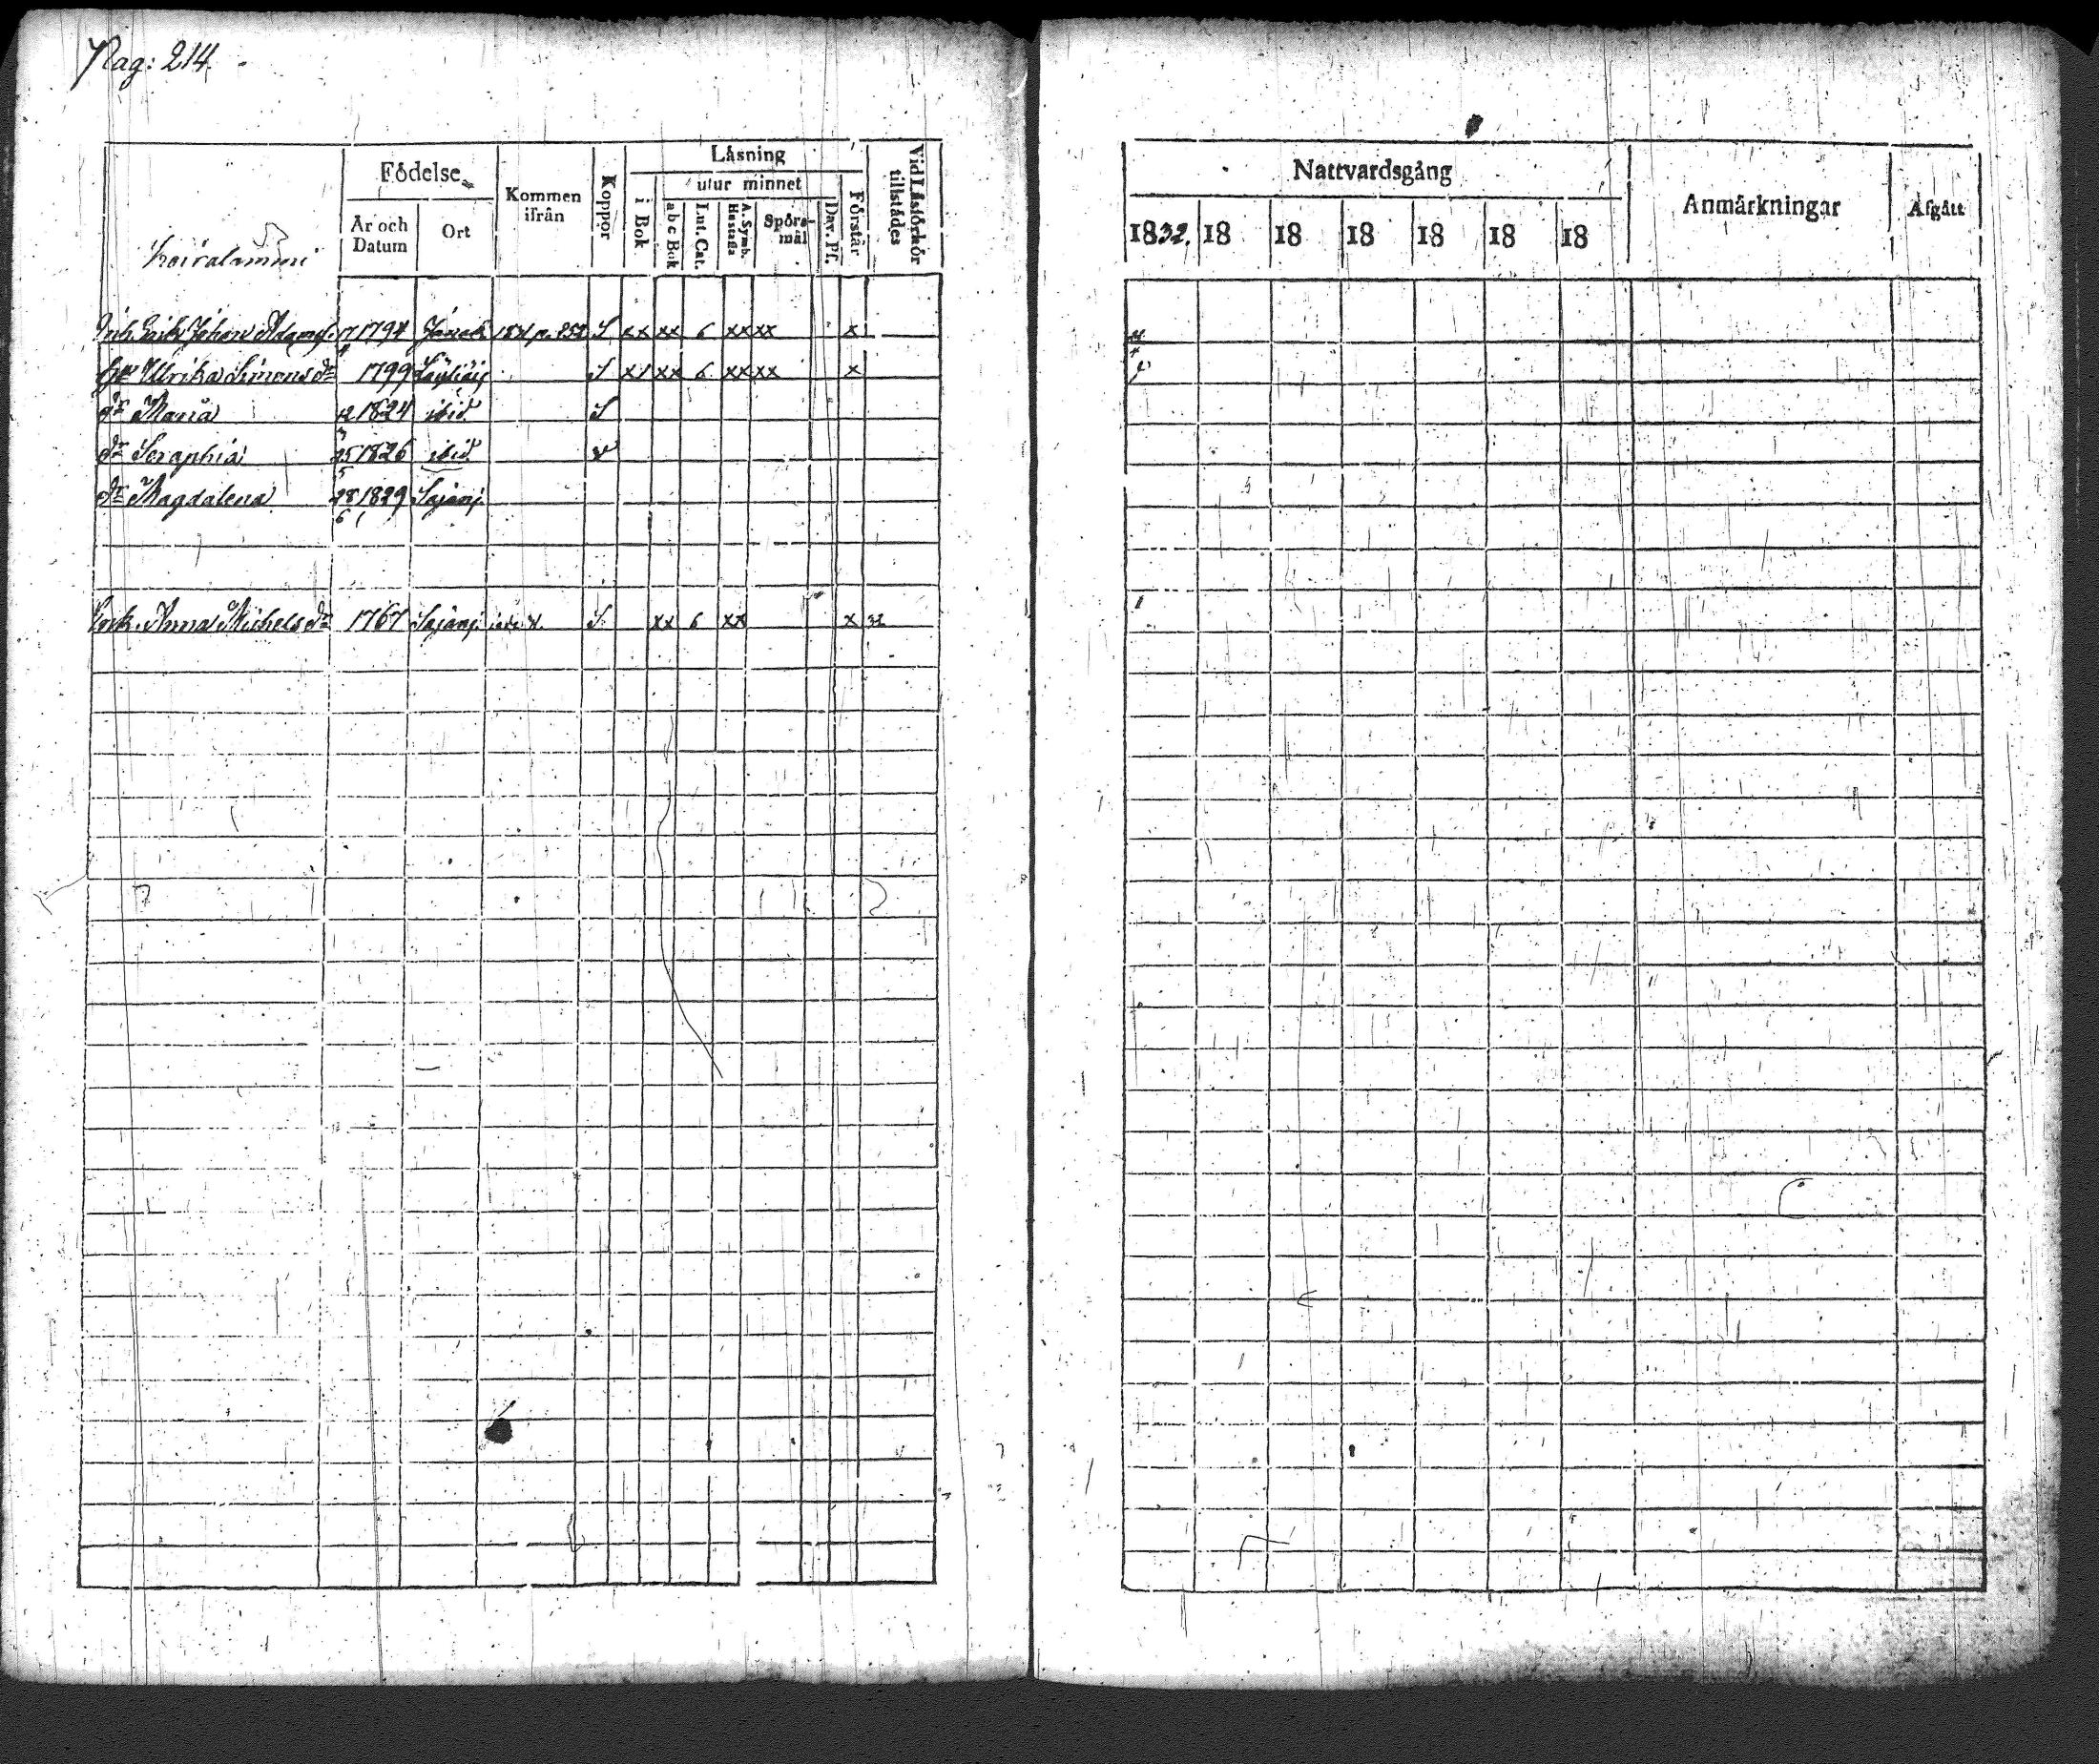 Pag: 214.
Födelse
År och Datum
Ort
Kommen ifrån
Koppor
Läsning
i Bok
utur minnet
a b c Bok
Lut. Cat.
A. Symb. Hustafla
Spörsmål
Dav. Ps.
Förstår
Vid Läsförhör tillstädes
Nattvardsgång
1832. 18 18 18 18 18 18
Anmärkningar
Afgått
Koiralammi
Erik Johan 17 1794 S xx xx 6 xx xx x
Ulrika Simons dr 1799 S xx xx 6 xx xx x
dr Maria 12 1824 ibid. S
dr Seraphia 25 1826 ibid. v
dr Magdalena 28/6 1829 Sajanj.
Anna Michels dr 1767 Sajanj. S xx 6 xx x 32